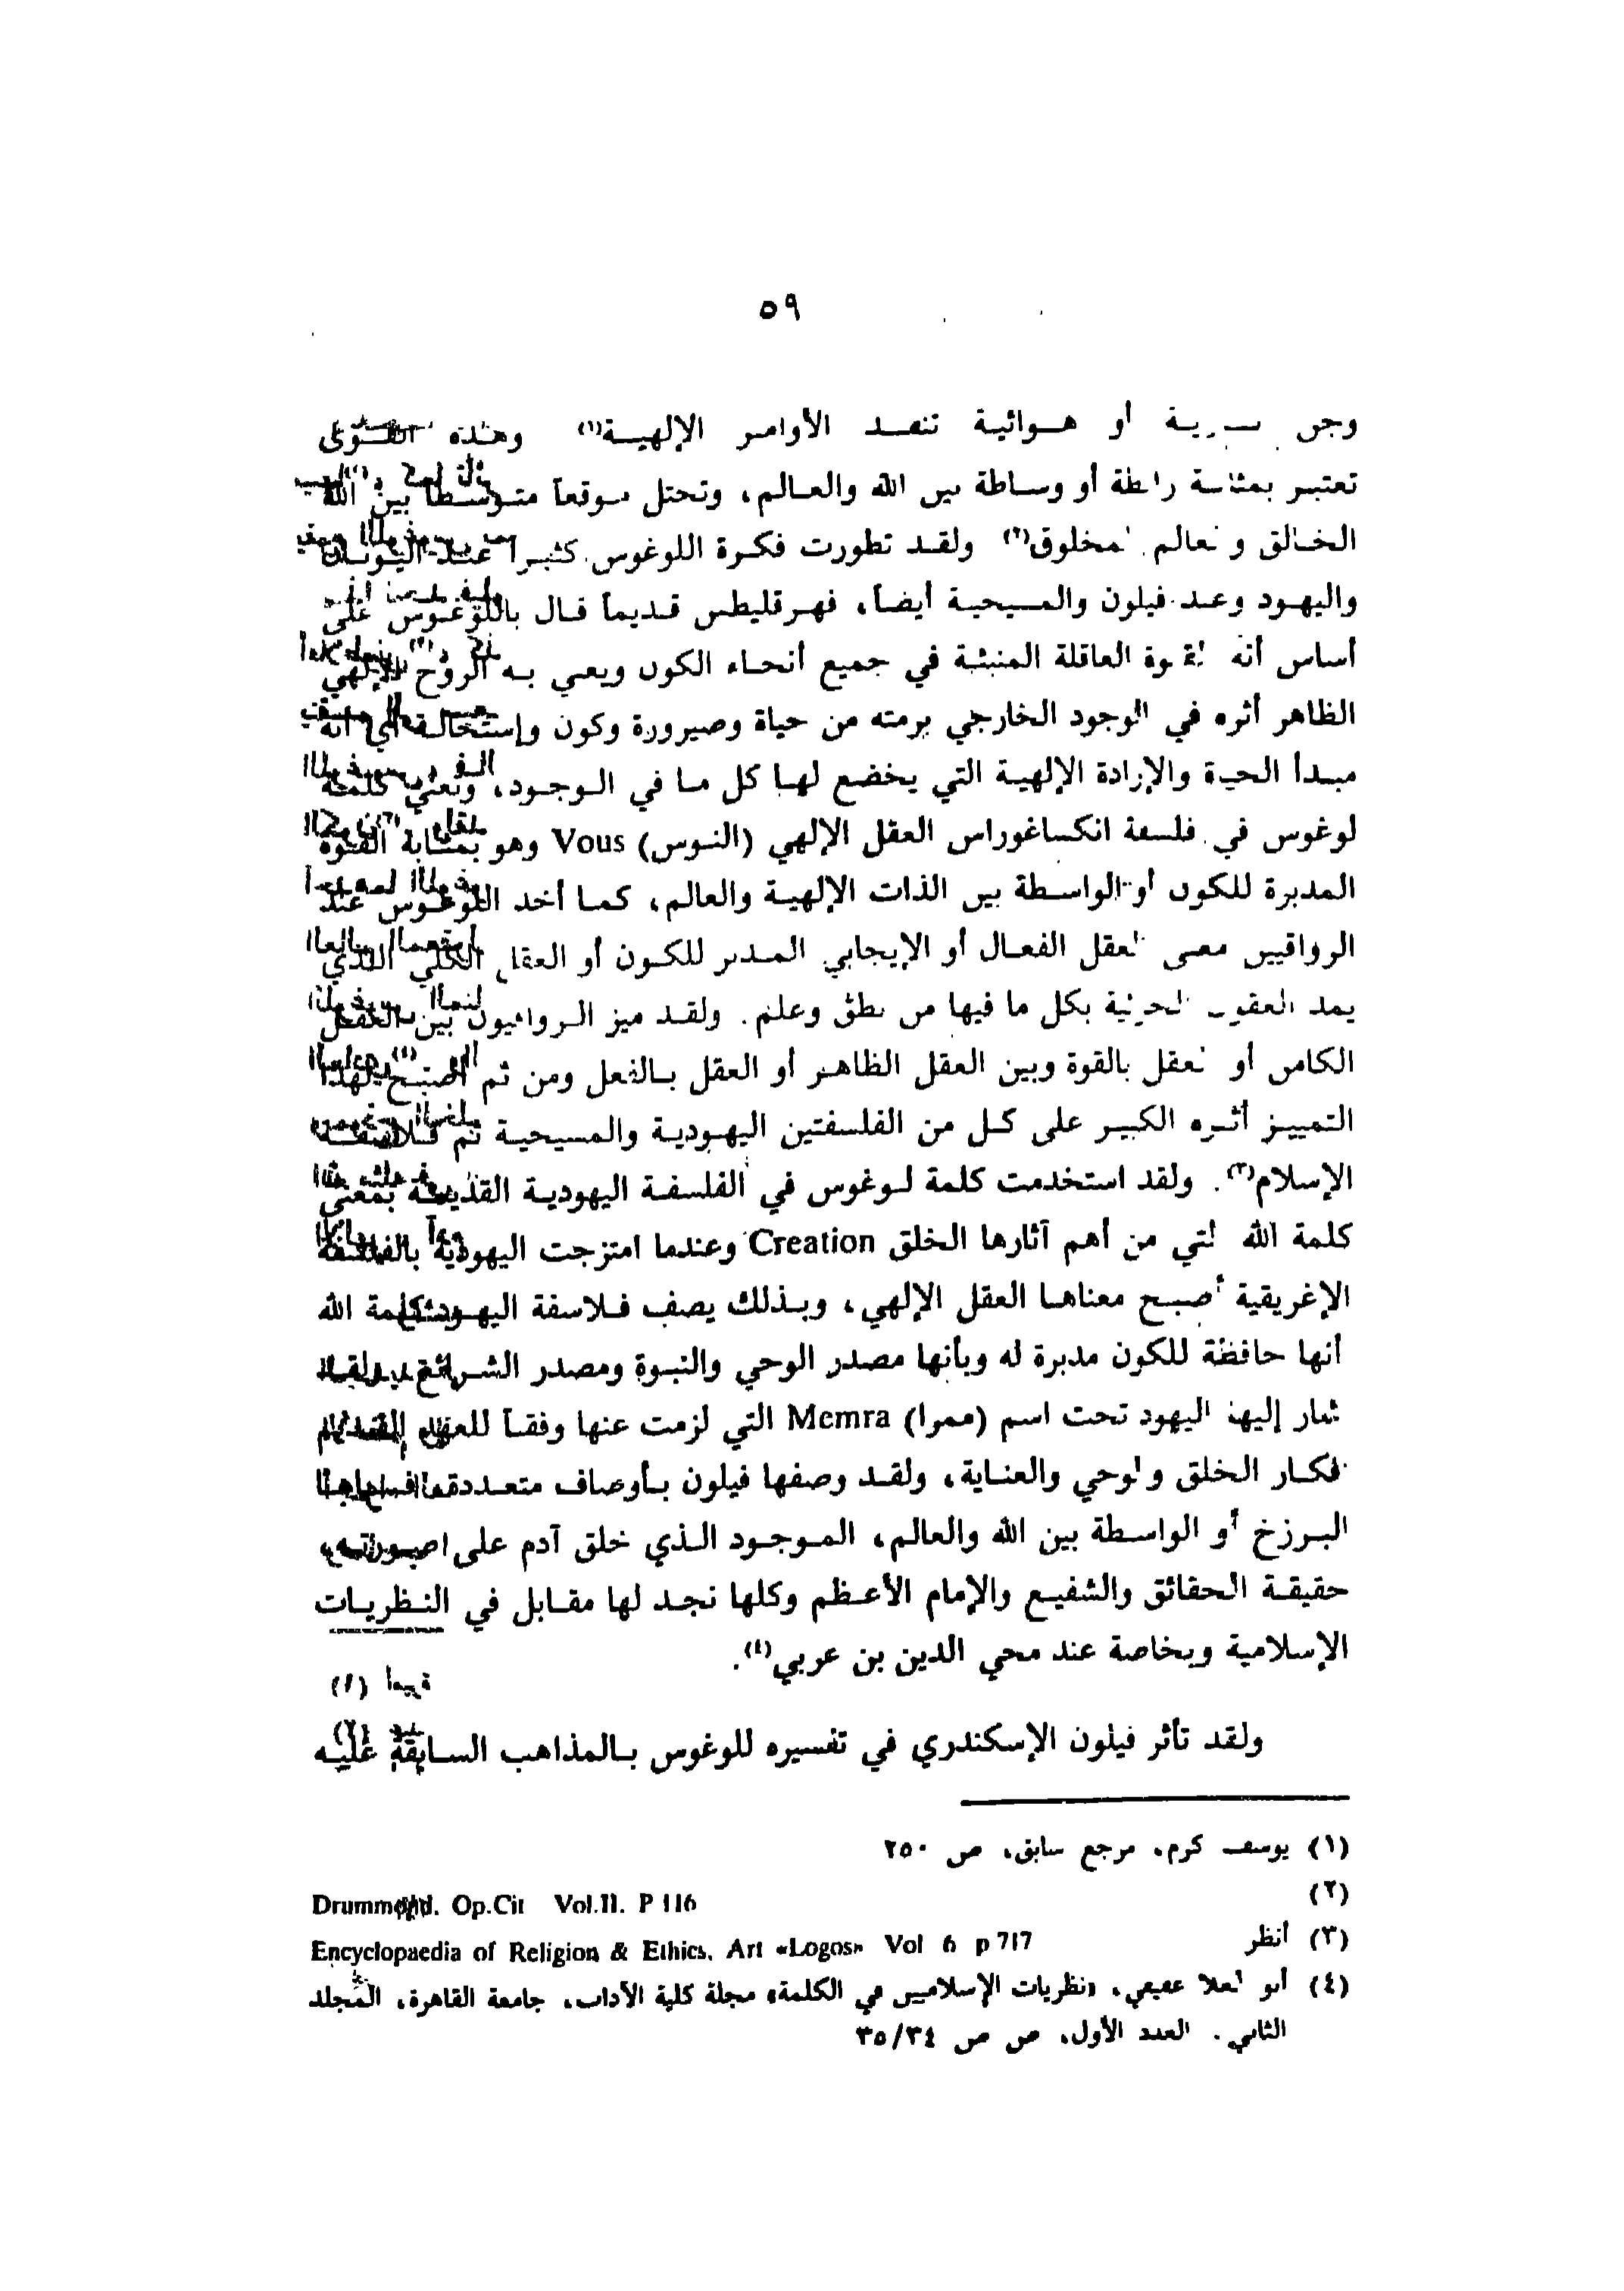 ٥٩
وجن أو هوائية تنفذ الأوامر الإلهية(١) وهذه القوى
تعتبر بمثابة رابطة أو وساطة بين الله والعالم، وتحتل موقعاً متوسطاً بين الله
الخالق والعالم المخلوق(٢) ولقد تطورت فكرة اللوغوس كثيراً عند اليونان
واليهود وعند فيلون والمسيحية أيضاً، فهرقليطس قديماً قال باللوغوس على
أساس أنه القوة العاقلة المنبثة في جميع أنحاء الكون ويعني به الروح الإلهي
الظاهر أثره في الوجود الخارجي برمته من حياة وصيرورة وكون وإستحالة أي أنه
مبدأ الحياة والإرادة الإلهية التي يخضع لها كل ما في الوجود، وتعني كلمة
لوغوس في فلسفة انكساغوراس العقل الإلهي (النوس) Vous وهو بمثابة القوة
المدبرة للكون أو الواسطة بين الذات الإلهية والعالم، كما أخذ اللوغوس عند
الرواقيين معنى العقل الفعال أو الإيجابي المدبر للكون أو العقل الكلي الذي
يمد العقول الجزئية بكل ما فيها من نطق وعلم. ولقد ميز الرواقيون بين العقل
الكامن أو العقل بالقوة وبين العقل الظاهر أو العقل بالفعل ومن ثم أصبح لهذا
التمييز أثره الكبير على كل من الفلسفتين اليهودية والمسيحية ثم فلاسفة
الإسلام(٣). ولقد استخدمت كلمة لوغوس في الفلسفة اليهودية القديمة بمعنى
كلمة الله التي من أهم آثارها الخلق Creation وعندما امتزجت اليهودية بالفلسفة
الإغريقية أصبح معناها العقل الإلهي، وبذلك يصف فلاسفة اليهود كلمة الله
أنها حافظة للكون مدبرة له وبأنها مصدر الوحي والنبوة ومصدر الشرائع ولقد
شار إليها اليهود تحت اسم (ممرا) Memra التي لزمت عنها وفقاً للعهد القديم
فكار الخلق والوحي والعناية، ولقد وصفها فيلون بأوصاف متعددة
البرزخ أو الواسطة بين الله والعالم، الموجود الذي خلق آدم على صورته،
حقيقة الحقائق والشفيع والإمام الأعظم وكلها نجد لها مقابل في النظريات
الإسلامية وبخاصة عند محي الدين بن عربي(٤).
ولقد تأثر فيلون الإسكندري في تفسيره للوغوس بالمذاهب السابقة عليه
(١) يوسف كرم، مرجع سابق، ص ٢٥٠
(٢) Drummond. Op.Cit Vol.II. P 116
(٣) أنظر Encyclopaedia of Religion & Ethics. Art «Logos» Vol 6 p 717
(٤) أبو العلا عفيفي، «نظريات الإسلاميين في الكلمة» مجلة كلية الآداب، جامعة القاهرة، المجلد
الثاني. العدد الأول، ص ص ٣٥/٣٤